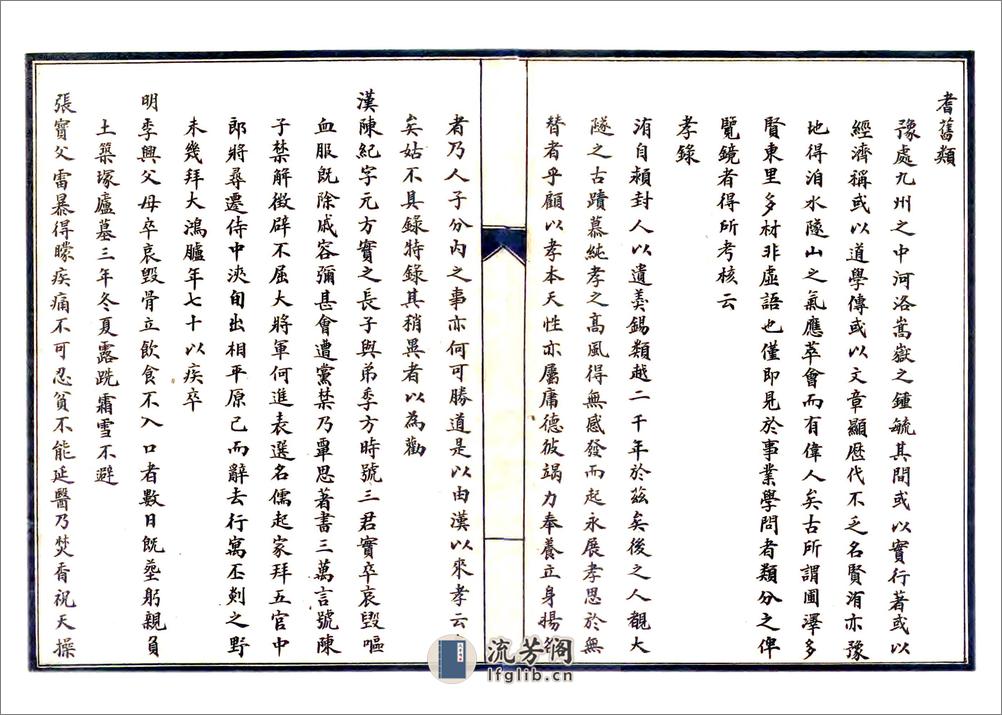 耆舊類
豫處九州之中河洛嵩嶽之鍾毓其間或以實行著或以
經濟稱或以道學傳或以文章顯歴代不乏名賢洧亦豫
地得洎水隧山之氣應萃會而有偉人矣古所謂圃澤多
賢東里多材非虛語也僅即見於事業學問者類分之俾
覽鏡者得所考核云
孝錄
洧自頴封人以遺羙錫類越二千年於兹矣後之人覩大
隧之古蹟慕純孝之高風得無感發而起永展孝思於無
替者乎顧以孝本天性亦屬庸德彼竭力奉養立身揚名
者乃人子分內之事亦何可勝道是以由漢以來孝云
矣姑不具錄特錄其稍異者以為勸
漢陳紀字元方實之長子與弟季方時號三君實卒哀毁嘔
血服既除戚容彌甚會遭黨禁乃覃思著書三萬言號陳
子禁解徴辟不屈大將軍何進表選名儒起家拜五官中
郎將尋遷侍中浹旬出相平原已而辭去行寓丕剡之野
未幾拜大鴻臚年七十以疾卒
明季興父母卒哀毁骨立飲食不入口者數日既塟躬親負
土築塚廬墓三年冬夏露跣霜雪不避
張寳父雷暴得矇疾痛不可忍貧不能延醫乃焚香祝天操
流芳阁
lfglib.cn